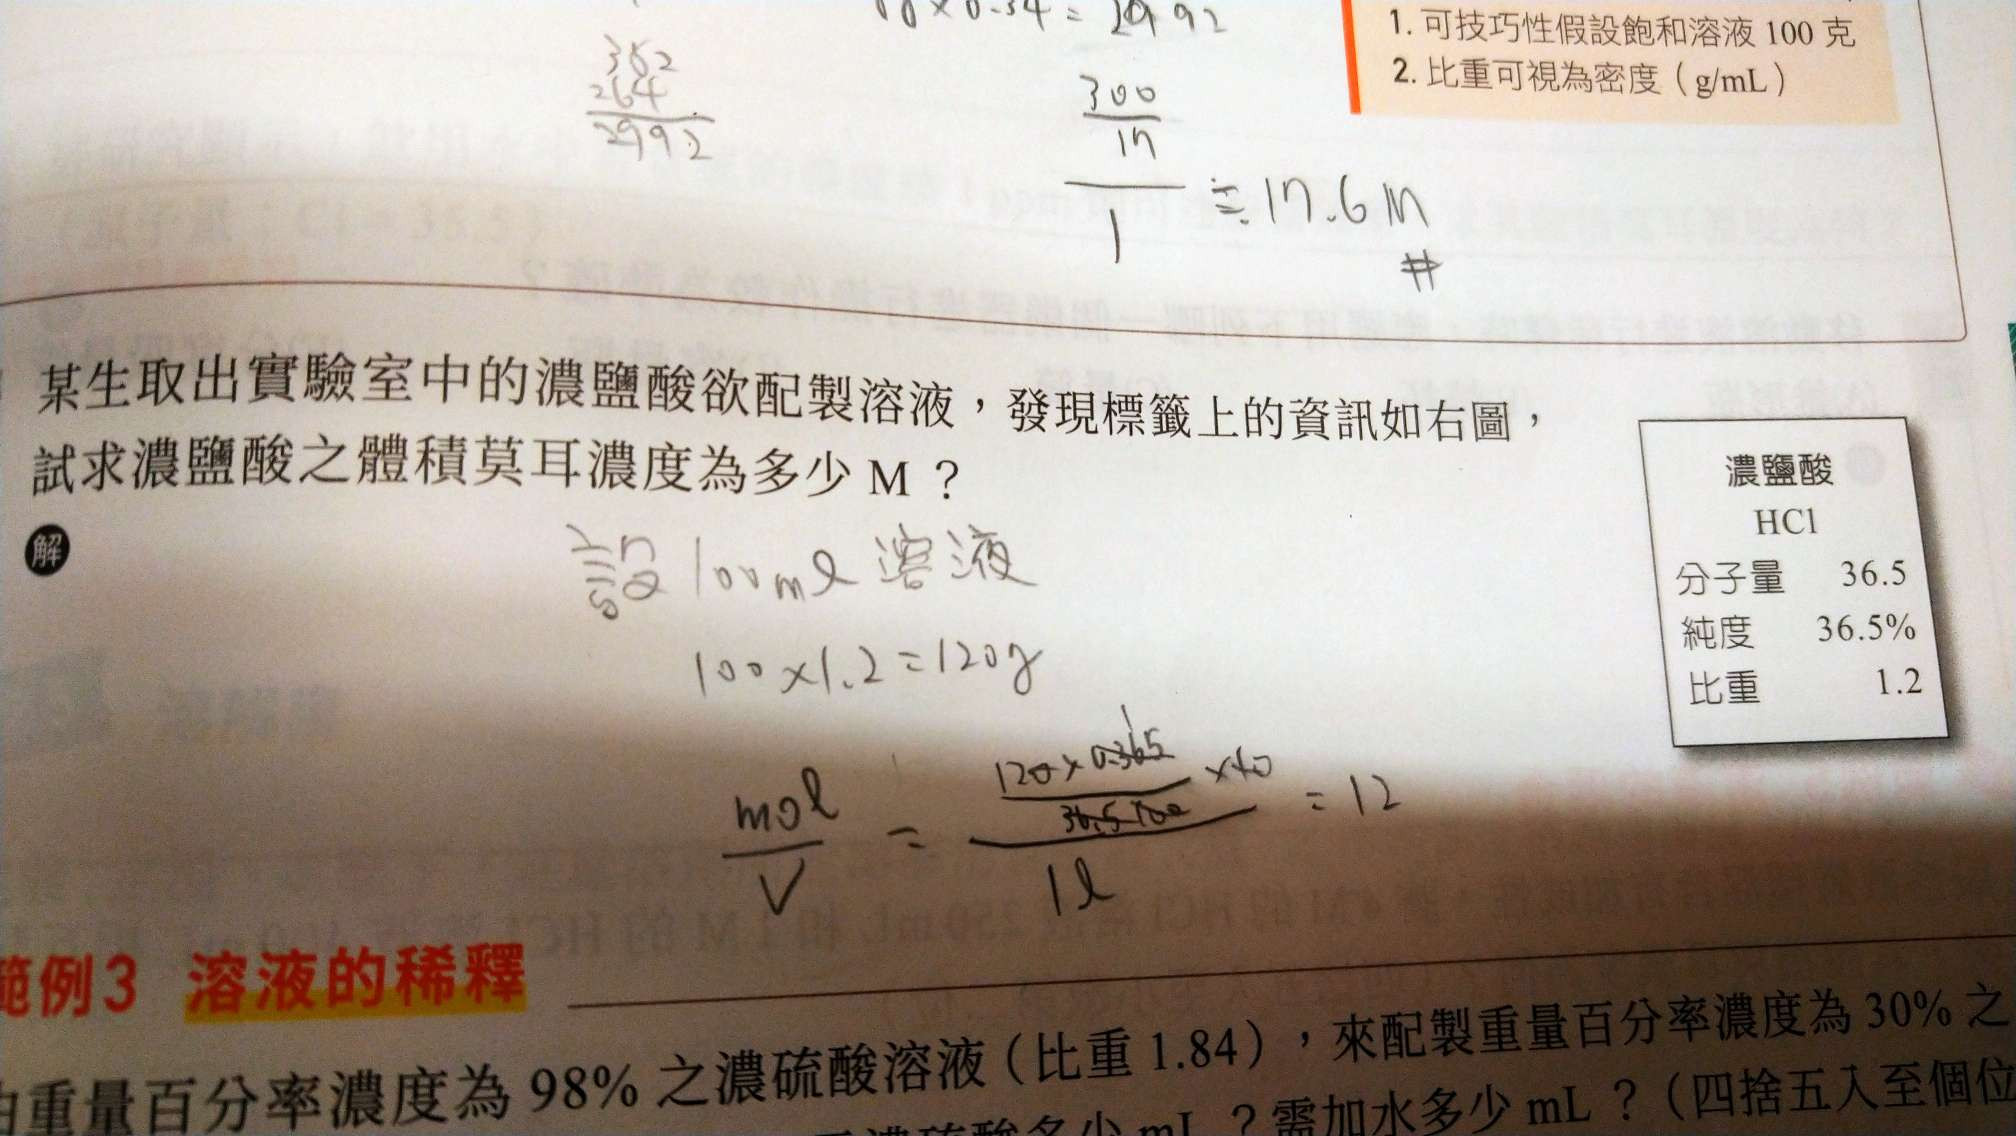 × 0.34 = 2992
1. 可技巧性假設飽和溶液 100 克
2. 比重可視為密度（g/mL）
352
264
2992
300
17
1
≒17.6 M
#
某生取出實驗室中的濃鹽酸欲配製溶液，發現標籤上的資訊如右圖，
試求濃鹽酸之體積莫耳濃度為多少 M？
解
濃鹽酸
HCl
分子量 36.5
純度 36.5%
比重 1.2
設 100ml 溶液
100×1.2=120g
mol
V
=
120×0.365
36.5
×10
1l
= 12
範例3 溶液的稀釋
由重量百分率濃度為 98% 之濃硫酸溶液（比重 1.84），來配製重量百分率濃度為 30% 之
濃硫酸多少 mL？需加水多少 mL？（四捨五入至個位